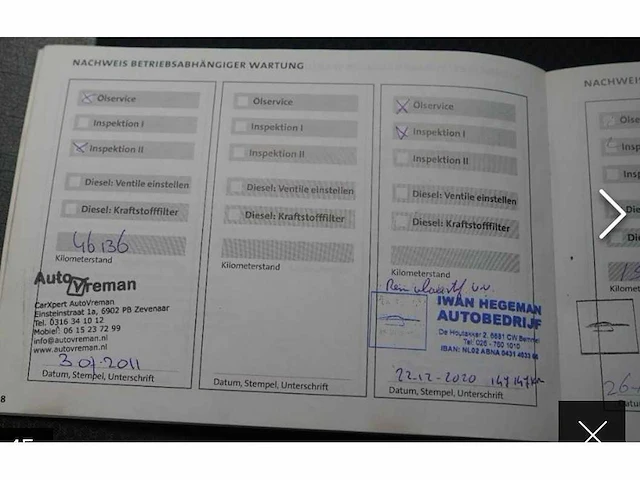 NACHWEIS BETRIEBSABHÄNGIGER WARTUNG
Ölservice
Inspektion I
Inspektion II
Diesel: Ventile einstellen
Diesel: Kraftstofffilter
46 136
Kilometerstand
AutoVreman
CarXpert AutoVreman
Einsteinstraat 1a, 6902 PB Zevenaar
Tel. 0316 34 10 12
Mobiel: 06 15 23 72 99
info@autovreman.nl
www.autovreman.nl
2011
Datum, Stempel, Unterschrift
8
Ölservice
Inspektion I
Inspektion II
Diesel: Ventile einstellen
Diesel: Kraftstofffilter
Kilometerstand
Datum, Stempel, Unterschrift
Ölservice
Inspektion I
Inspektion II
Diesel: Ventile einstellen
Diesel: Kraftstofffilter
Kilometerstand
IWAN HEGEMAN
AUTOBEDRIJF
De Houtakker 2, 6681 CW Bemmel
Tel: 026 - 760 1010
IBAN: NL02 ABNA 0431 4633
22-12-2020 147147km
Datum, Stempel, Unterschrift
NACHWEIS
Ölse
Insp
Insp
Die
Die
Kilomet
26-